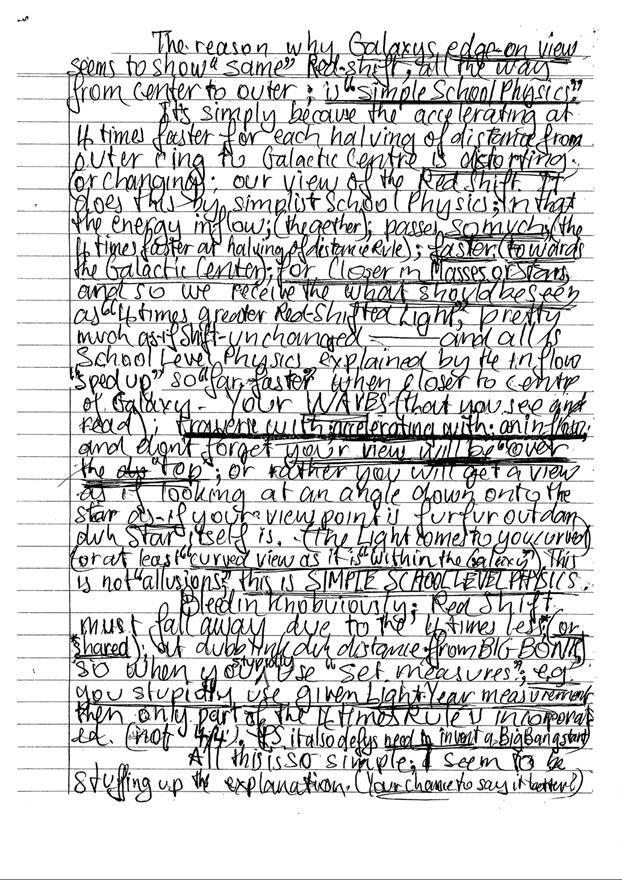 The reason why Galaxys edge-on view
seems to show "same" Red-shift, all the way
from center to outer; is "simple School Physics".
It's simply because the accelerating at
4 times faster for each halving of distance from
outer ring to Galactic Centre is distorting
(or changing); our view of the Red Shift. It
does this by simplist School Physics; In that
the energy inflow; (the gether); passes so much; (the
4 times faster at halving of distance Rule); faster (towards
the Galactic Center); for closer in Masses or Stars
and so we receive the what should be seen
as "4 times greater Red-Shifted Light", pretty
much as-if Shift-unchanged —— and all is
School Level Physics explained by the inflow
"sped up" so "far faster" when closer to centre
of Galaxy. Your WAVES (that you see and
read); traverse with accelerating with; an inflow;
and dont forget your view will be "over
the top"; or rather you will get a view
as if looking at an angle down onto the
star as-if your viewpoint is furfur out dan
duh Star itself is. (the Light comes to you curved)
(or at least "curved view as it is "within the Galaxy") This
is not "allusions" this is SIMPLE SCHOOL LEVEL PHYSICS.
Bleedin knobviously; Red Shift
must fall away due to the "4 times less (or
shared); at dubblink duh distance from BIG BONK;
so when you stupidly use "set measures"; e.g.
you stupidly use given Light-Year measurement
then only part of the 4 times Rule is incorporat
ed. (not 4/4). (PS it also defys need to invent a Big Bang start)
All this is so simple; I seem to be
stuffing up the explanation. (Your chance to say it better!)